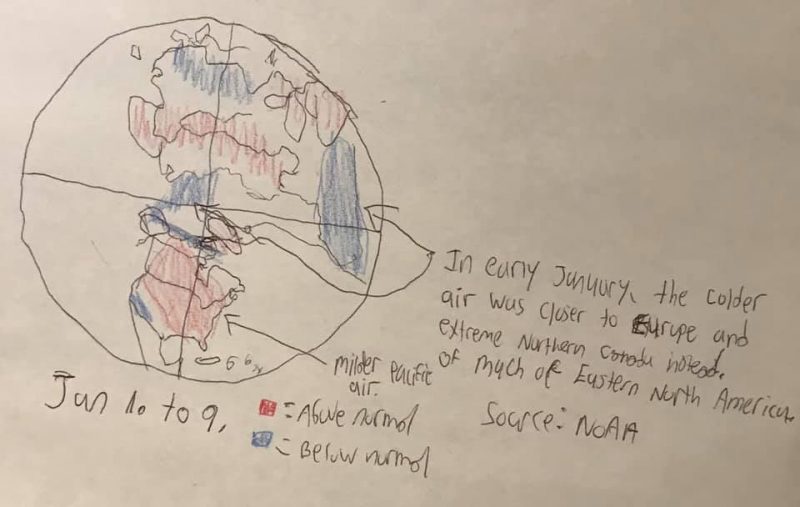 In early January, the colder
air was closer to Europe and
extreme Northern Canada instead.
of much of Eastern North America.
milder Pacific
air.
Jan 1. to 9.
= Above normal
= Below normal
Source: NOAA